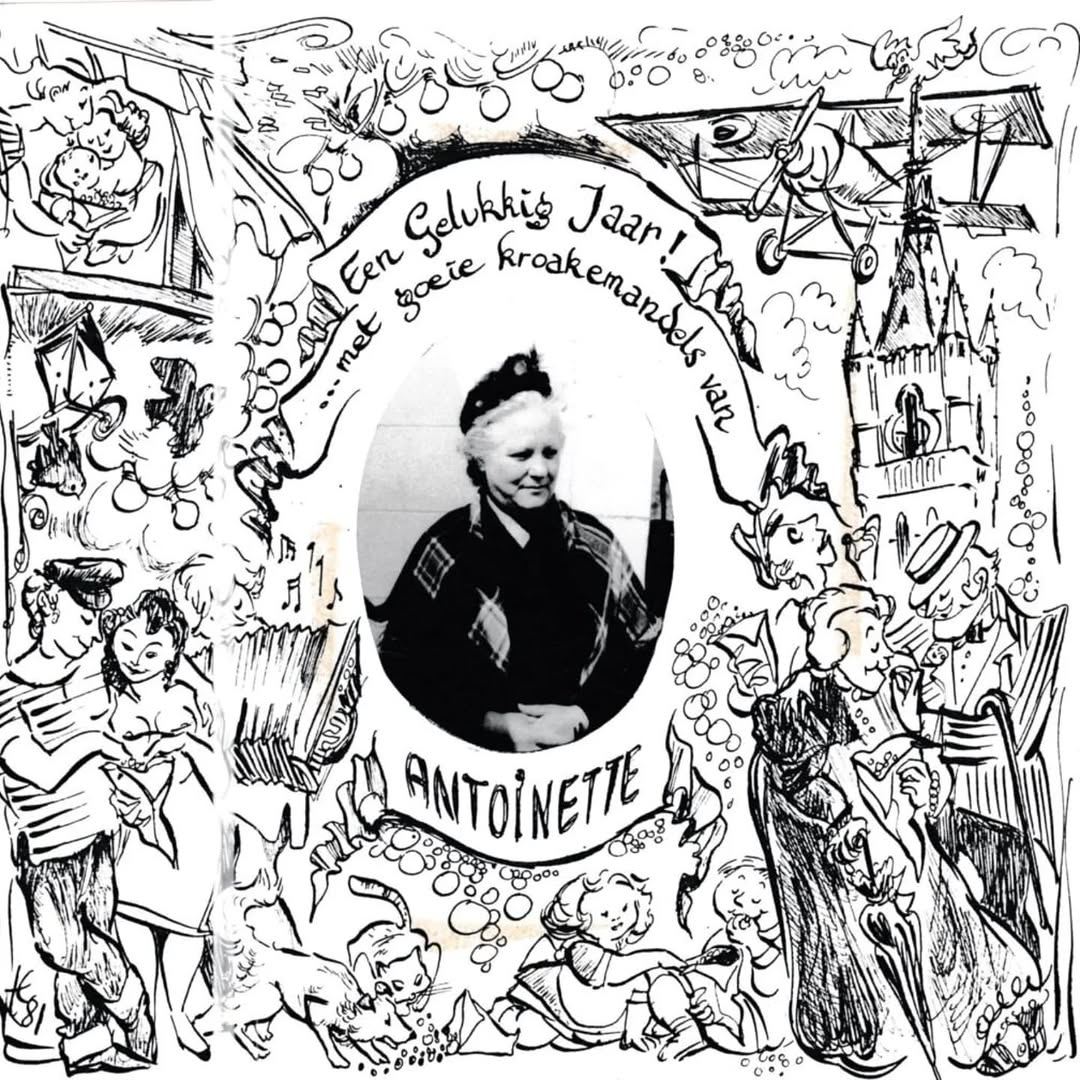 Een Gelukkig Jaar!
...met goeie kroakemandels van
ANTOINETTE